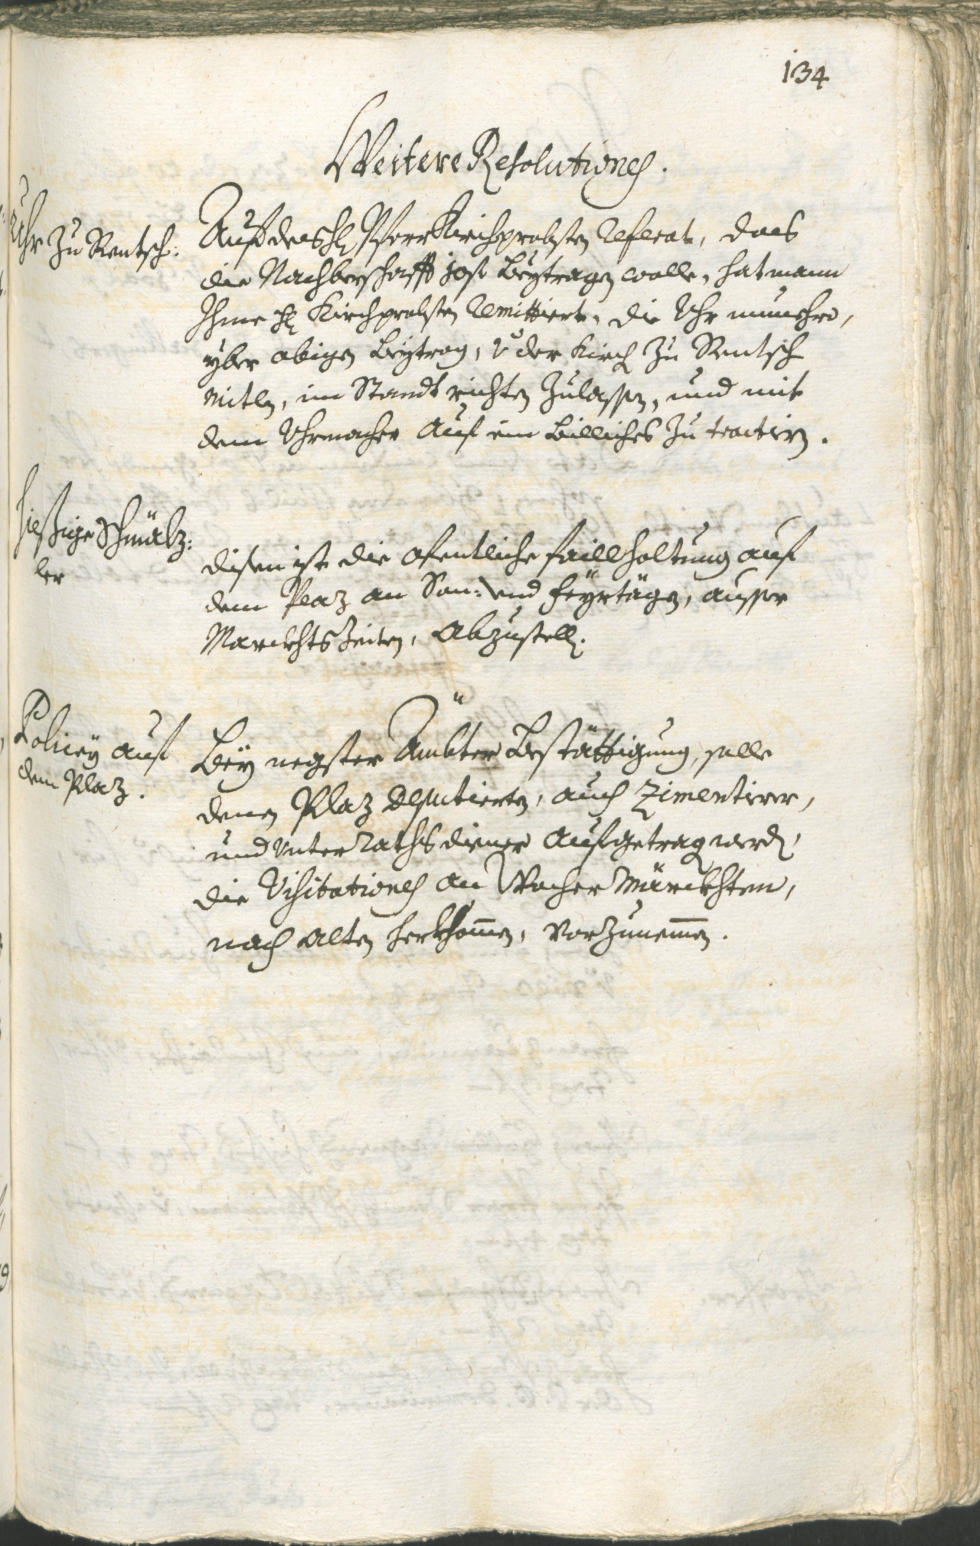 134
Weitere Resolutiones.
Uhr zu Rentsch:
Auf des H: Pfarr Kirchprobsten Referat, das
die Nachberschafft 10 f Beytragen wolle, hat mann
Ihme H: Kirchprobsten Remittiert, die Uhr nunmehro,
yber obigen Beytrag, v: der Kirch zu Rentsch
Mitln, im Standt richten zulassen, und mit
dem Uhrmacher auf ein Billiches zu tractirn.
hießige Schmälz:
ler
disen ist die ofentliche faillhaltung auf
dem Plaz an Son: und feyrtägen, ausser
Marckhts Zeiten, Abzustellen.
Policey auf
dem Plaz.
Bey negster Ämbter Bestättigung, solle
denen Plaz Deputierten, auch Zimentirer,
und Unter Rathsdiener aufgetragen werden,
die Visitationes an Wochen Märckhten,
nach Alten herkhomen, vorzunemen.